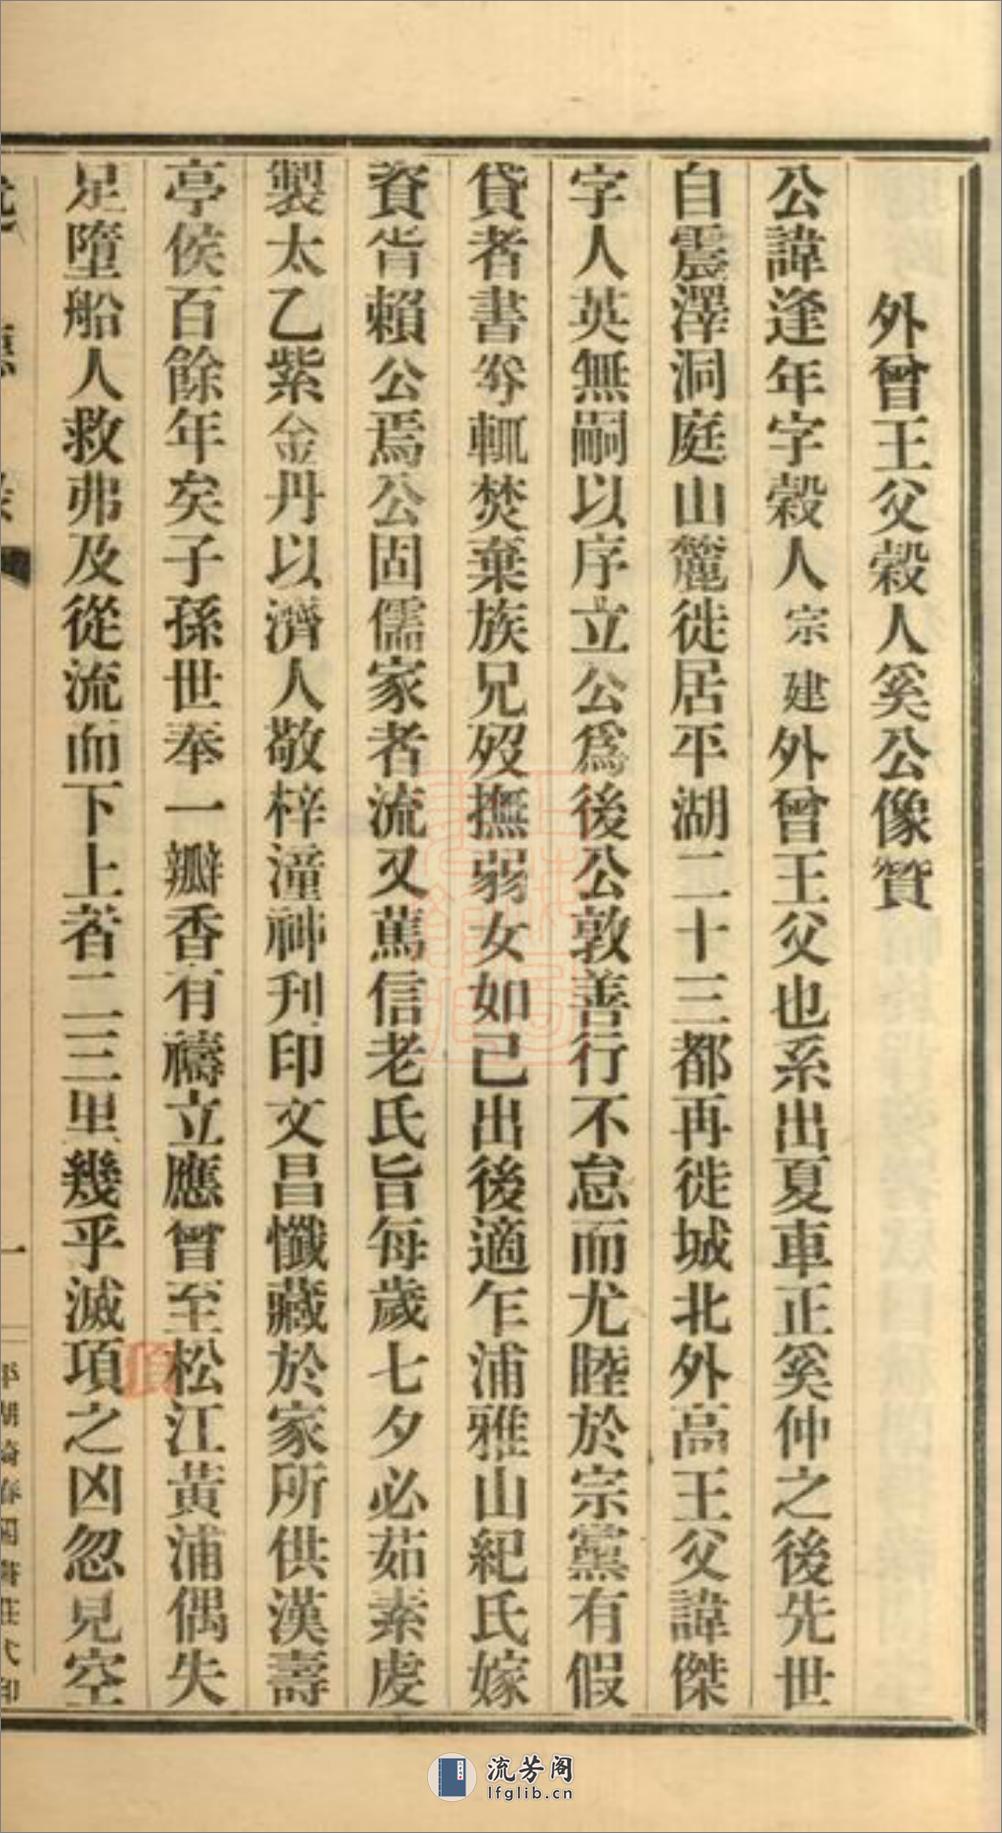 外曾王父穀人奚公像贊
公諱逢年字穀人宗建外曾王父也系出夏車正奚仲之後先世
自震澤洞庭山簏徙居平湖二十三都再徙城北外高王父諱傑
字人英無嗣以序立公爲後公敦善行不怠而尤睦於宗黨有假
貸者書券輒焚棄族兄歿撫弱女如己出後適乍浦雅山紀氏嫁
資皆賴公焉公固儒家者流又篤信老氏旨每歲七夕必茹素虔
製太乙紫金丹以濟人敬梓潼神刋印文昌懺藏於家所供漢壽
亭侯百餘年矣子孫世奉一瓣香有禱立應曾至松江黃浦偶失
足墮船人救弗及從流而下上者二三里幾乎滅項之凶忽見空
一
平湖綺春閣書莊代印
流芳阁
lfglib.cn